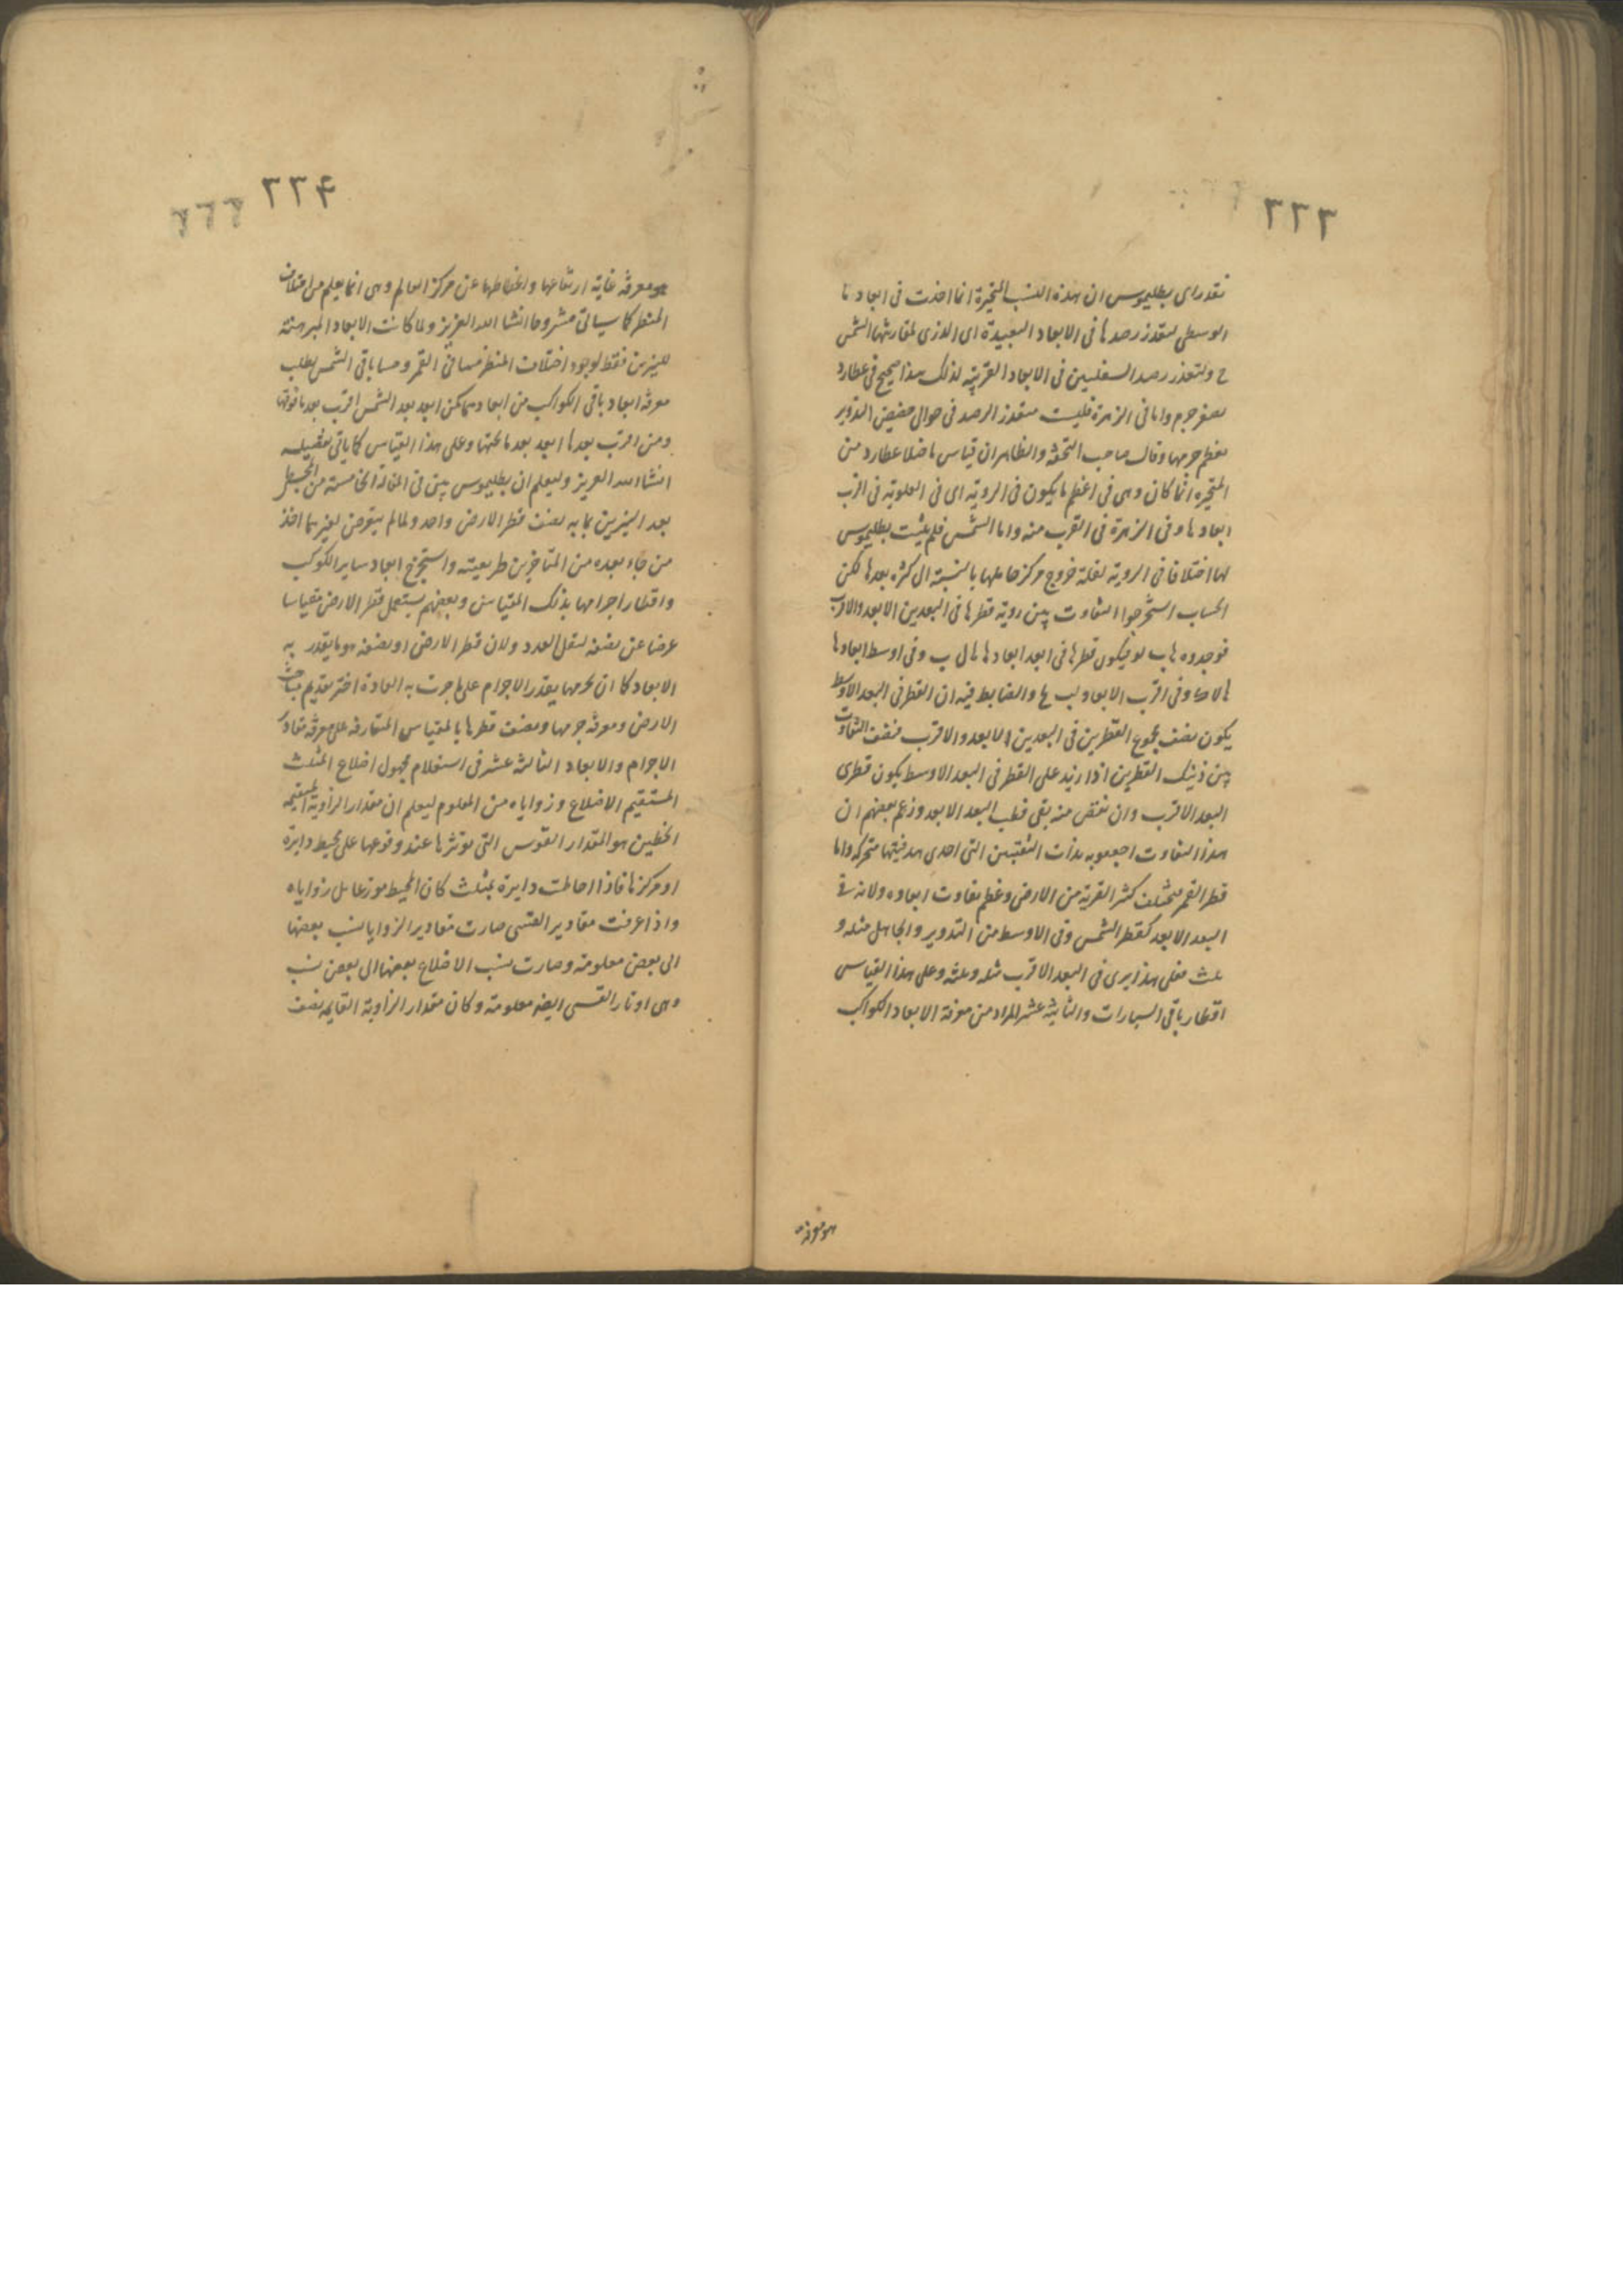 ٢٢٣
فقد رأى بطليموس ان هذه النسب المتحيرة انما اخذت فى ابعادها
الوسطى لتعذر رصدها فى الابعاد البعيدة اى الذرى لمقارنتها الشمس
ح ولتعذر رصد السفليين فى الابعاد القريبة لذلك هذا صحيح فى عطارد
لصغر جرمه واما فى الزهرة فليست متعذر الرصد فى حوالى حضيض التدوير
لعظم جرمها وقال صاحب التحفة والظاهر ان قياس ما خلا عطارد من
المتحيرة انما كان وهى فى اعظم ما يكون فى الروية اى فى العلوية فى اقرب
ابعادها وفى الزهرة فى القرب منه واما الشمس فلم يثبت بطليموس
لها اختلافا فى الروية لقلة خروج مركز حاملها بالنسبة الى كثرة بعدها لكن
الحساب استخرجوا التفاوت بين روية قطرها فى البعدين الابعد والاقرب
فوجدوه ها ب لو فيكون قطرها فى ابعد ابعادها لا ل ب وفى اوسط ابعادها
وفى اقرب الابعاد لب والضابط فيه ان القطر فى البعد الاوسط
يكون نصف مجموع القطرين فى البعدين الابعد والاقرب فنصف التفاوت
بين ذينك القطرين اذا زيد على القطر فى البعد الاوسط يكون قطرى
البعد الاقرب وان نقص منه بقى قطب البعد الابعد وزعم بعضهم ان
هذا التفاوت بذات الثقبتين التى احدى هدفتيها متحركة واما
قطر القمر فمختلف كثير القربه من الارض وعظم تفاوت ابعاده ولانه فى
البعد الابعد كقطر الشمس وفى الاوسط من التدوير والحامل مثله و
ثلث فعلى هذا يرى فى البعد الاقرب مثله وثلثه وعلى هذا القياس
اقطار باقى السيارات والثانية عشر المراد من معرفة الابعاد الكواكب
هو معرفة
٢٢٤
هو معرفة غاية ارتفاعها وانخفاضها عن مركز العالم وهى انما يعلم من اختلاف
المنظر كما سياتى مشروحا انشا الله العزيز ولما كانت الابعاد المبرهنة
للنيرين فقط لوجود اختلاف المنظر فى القمر وحسابا فى الشمس يطلب
معرفة ابعاد باقى الكواكب من ابعادهما لكن ابعد بعد الشمس اقرب بعد ما فوقها
ومن اقرب بعدها ابعد بعد ما تحتها وعلى هذا القياس كما ياتى تفصيله
انشاء الله العزيز وليعلم ان بطليموس بين فى المقالة الخامسة من المجسطى
بعد النيرين بما به نصف قطر الارض واحد ولما لم يتعرض لغيرهما اخذ
من جاء بعده من المتاخرين طريقته واستخرج ابعاد ساير الكواكب
واقطار اجرامها بذلك المقياس وبعضهم يستعمل قطر الارض مقياسا
عوضا عن نصفه لتقل العدد ولان قطر الارض او نصفه هو ما يقدر به
الابعاد كما ان جرمها يقدر الاجرام على ما جرت به العادة اختر تقديم مباحث
الارض ومعرفة جرمها ونصف قطرها بالمقياس المتعارفة على معرفة مقادير
الاجرام والابعاد الثالثة عشر فى استعلام مجهول اضلاع المثلث
المستقيم الاضلاع وزواياه من المعلوم ليعلم ان مقدار الزاوية المستقيمة
الخطين هو المقدار القوس التى توترها عند وقوعها على محيط دايرة
او مركزها فاذا احاطت دايرة بمثلث كان المحيط موزعا على زواياه
واذا عرفت مقادير القسى صارت مقادير الزوايا نسب بعضها
الى بعض معلومة وصارت نسب الاضلاع بعضها الى بعض نسب
وهى اوتار القسى ايضه معلومة وكان مقدار الزاوية القايمة نصف